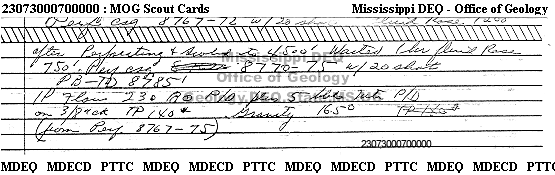 23073000700000 : MOG Scout Cards Mississippi DEQ - Office of Geology
Perf csg 8767-72 w/20 shots fluid Rose 1200
after Perforating & Swabed to 4500' Waited 1 hr fluid Rose
750' Perf csg 8770-75 w/20 shots
PB-TD 8785'
Mississippi DEQ
Office of Geology
IP Flow 230 BO P/D plus 5 bbls P/D
on 3/ck TP 140# Gravity 1650 TP 140#
(from Perf 8767-75)
23073000700000
MDEQ MDECD PTTC MDEQ MDECD PTTC MDEQ MDECD PTTC MDEQ MDECD PTTC